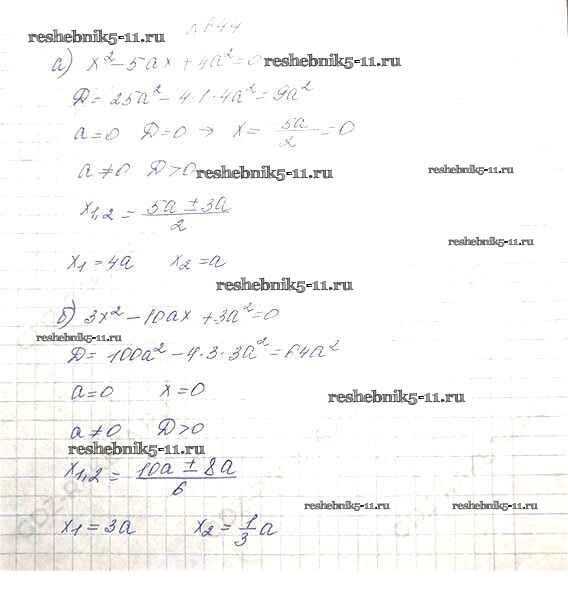 №644
reshebnik5-11.ru
а) x² - 5ax + 4a² = 0 reshebnik5-11.ru
D = 25a² - 4·1·4a² = 9a²
a = 0 D = 0 → x = 5a/2 = 0
a ≠ 0 D > 0 reshebnik5-11.ru reshebnik5-11.ru
x₁,₂ = (5a ± 3a)/2
reshebnik5-11.ru
x₁ = 4a x₂ = a
reshebnik5-11.ru
б) 3x² - 10ax + 3a² = 0
reshebnik5-11.ru
D = 100a² - 4·3·3a² = 64a²
a = 0 x = 0
reshebnik5-11.ru
a ≠ 0 D > 0
reshebnik5-11.ru
x₁,₂ = (10a ± 8a)/6
reshebnik5-11.ru reshebnik5-11.ru
x₁ = 3a x₂ = 1/3 a